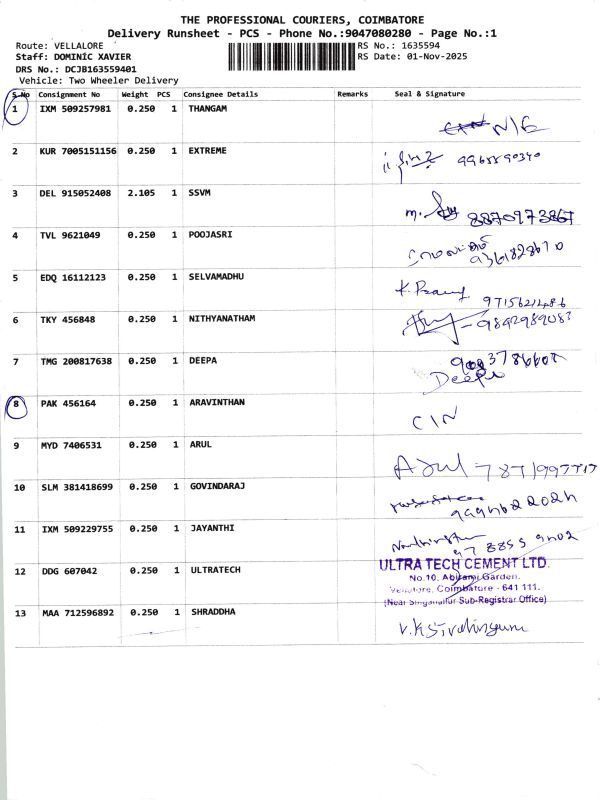 THE PROFESSIONAL COURIERS, COIMBATORE
Delivery Runsheet - PCS - Phone No.:9047080280 - Page No.:1
Route: VELLALORE RS No.: 1635594
Staff: DOMINIC XAVIER RS Date: 01-Nov-2025
DRS No.: DCJB163559401
Vehicle: Two Wheeler Delivery
S.No Consignment No Weight PCS Consignee Details Remarks Seal & Signature
1 IXM 509257981 0.250 1 THANGAM
2 KUR 7005151156 0.250 1 EXTREME
3 DEL 915052408 2.105 1 SSVM
8870973867
4 TVL 9621049 0.250 1 POOJASRI
5 EDQ 16112123 0.250 1 SELVAMADHU
6 TKY 456848 0.250 1 NITHYANATHAM
7 TMG 200817638 0.250 1 DEEPA
Deepa
8 PAK 456164 0.250 1 ARAVINTHAN
9 MYD 7406531 0.250 1 ARUL
Arul
10 SLM 381418699 0.250 1 GOVINDARAJ
11 IXM 509229755 0.250 1 JAYANTHI
12 DDG 607042 0.250 1 ULTRATECH
ULTRA TECH CEMENT LTD.
No.10, Abirami Garden,
Vellalore, Coimbatore - 641 111.
(Near Singanallur Sub-Registrar Office)
13 MAA 712596892 0.250 1 SHRADDHA